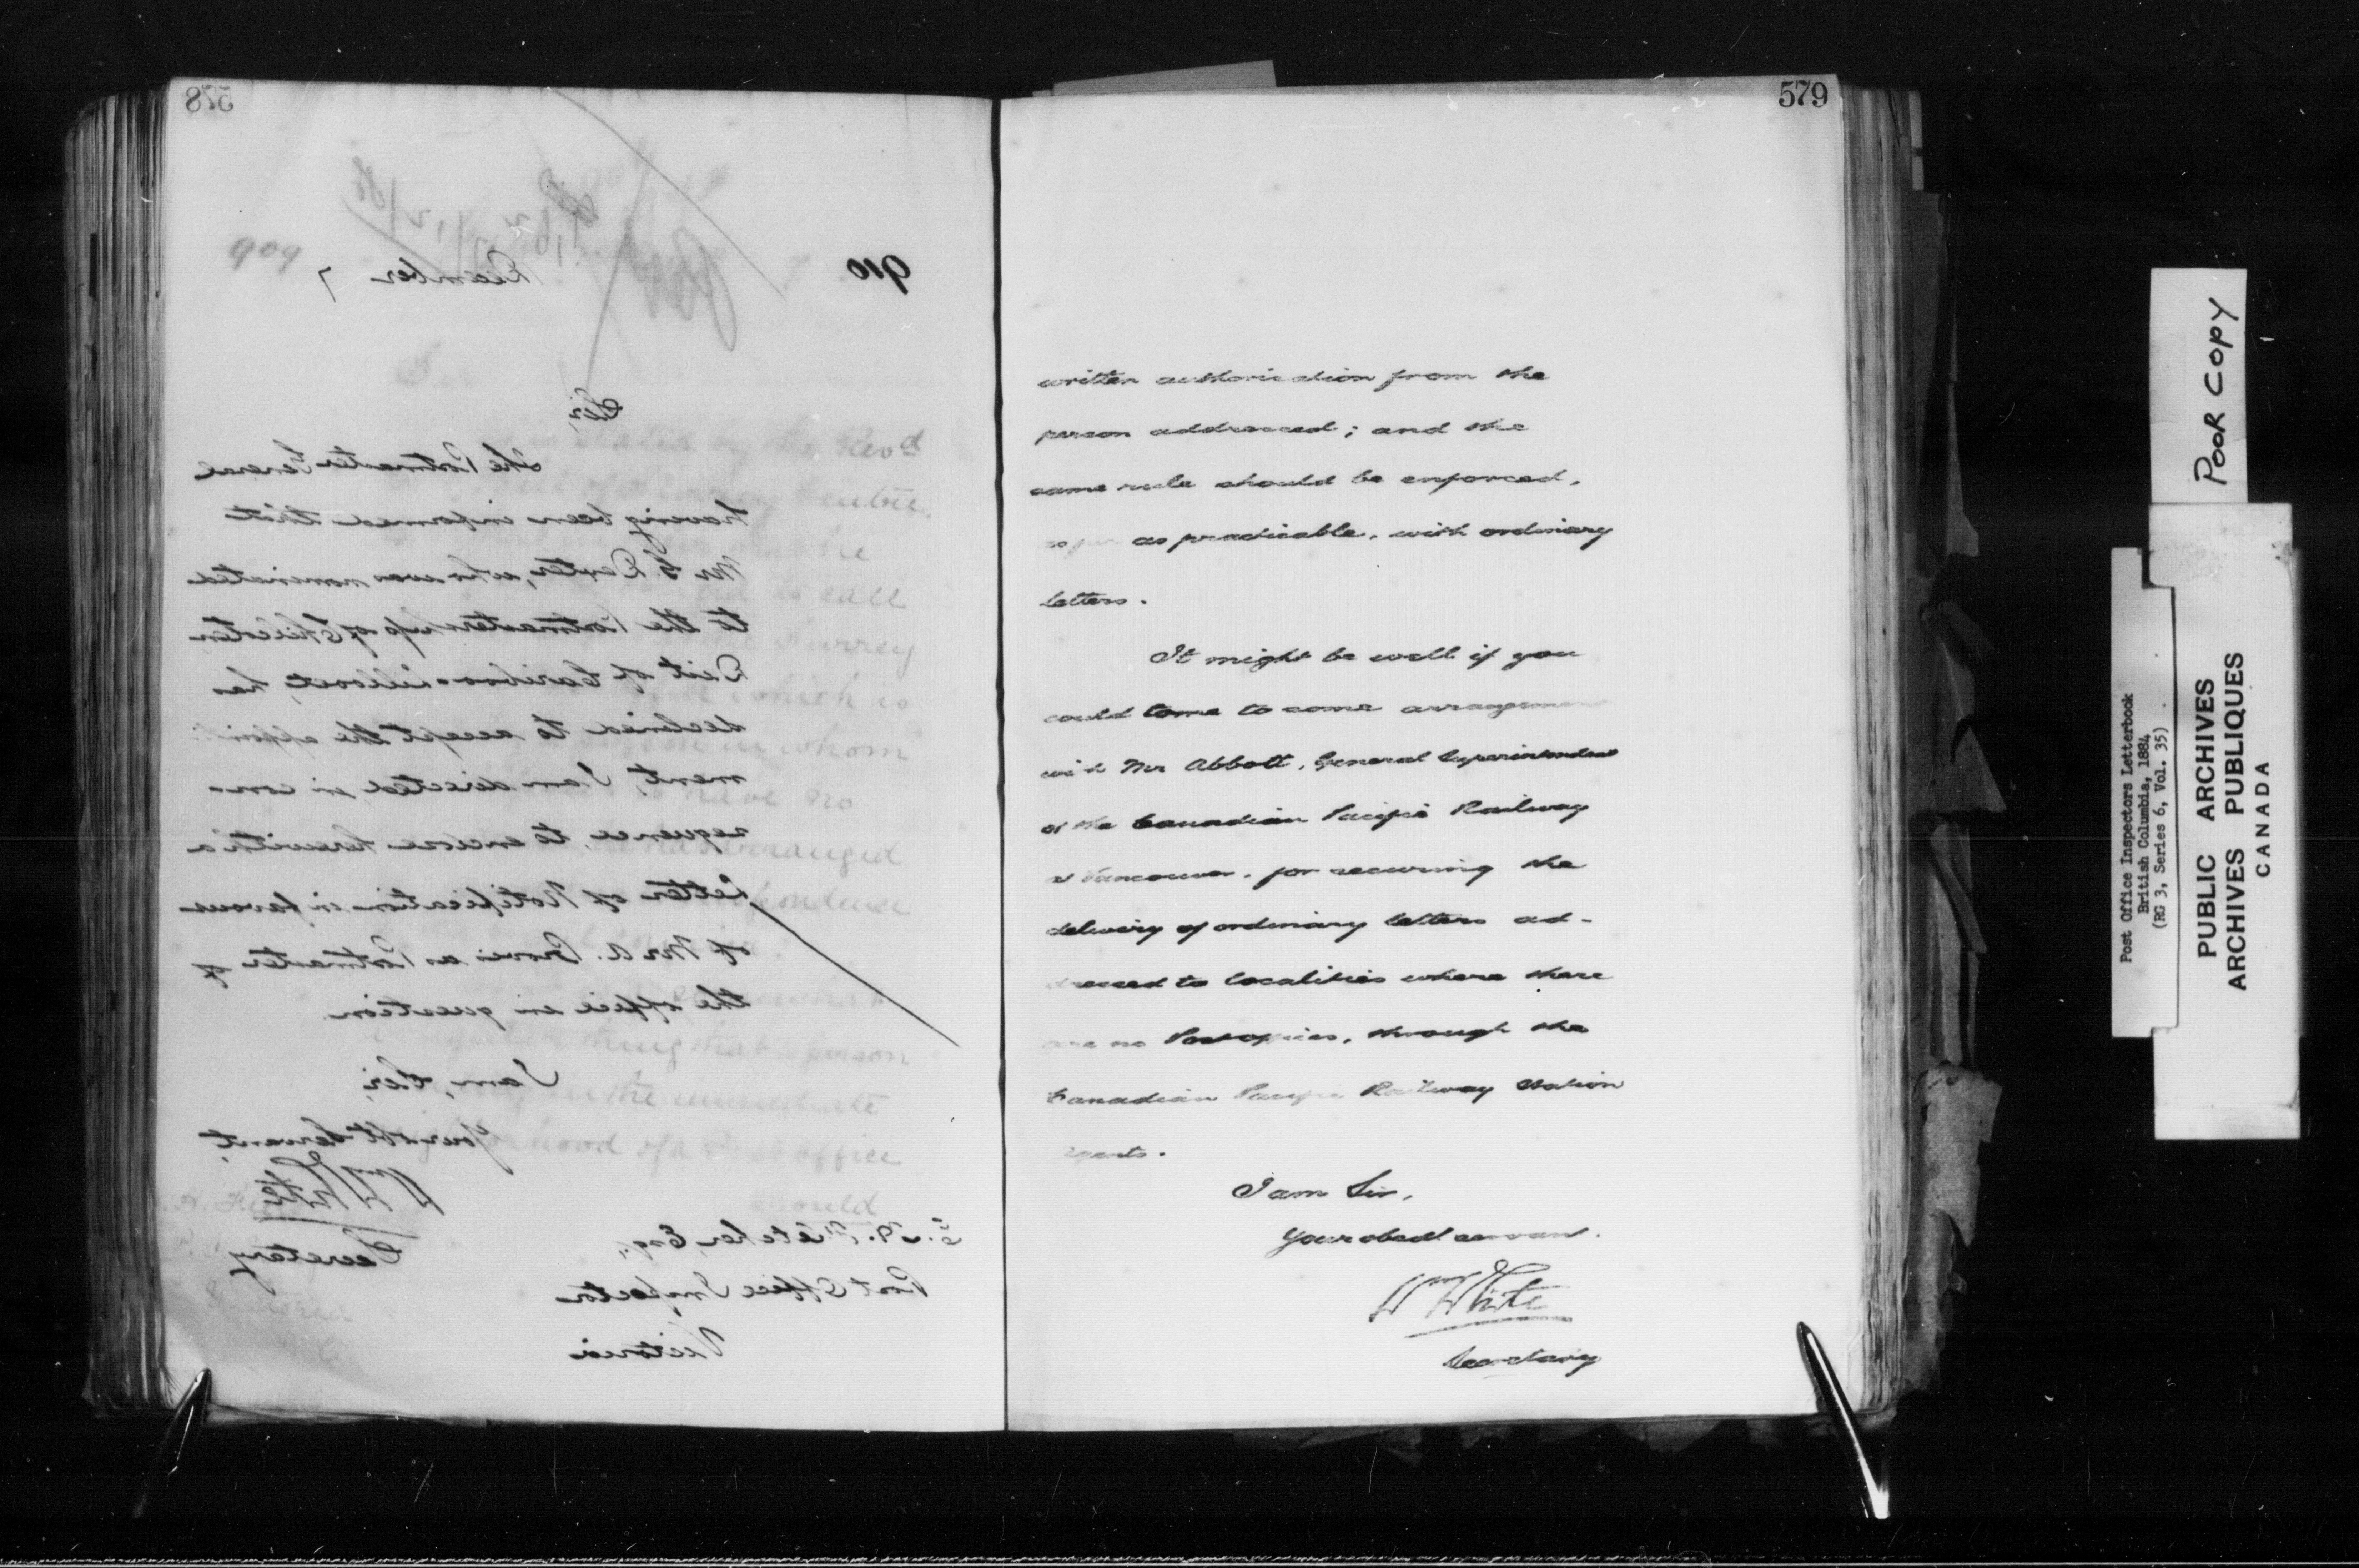 578
910
909
December 7
Sir,
The Postmaster General
having been informed that
Mr G. Dexter, who was nominated
to the Postmastership of Chilcoten
Dist of Cariboo & Lillooet, has
declined to accept the appoint
ment, I am directed, in con-
sequence, to enclose herewith a
Letter of Notification in favour
of Mr A. as Postmaster of
the office in question
I am, Sir,
Your obt Servant,
Wm White
Secretary
E. H. Fletcher, Esq.,
Post Office Inspector
Victoria
579
written authorization from the
person addressed; and the
same rule should be enforced,
as far as practicable, with ordinary
letters.
It might be well if you
could come to some arrangement
with Mr Abbott, General Superintendent
of the Canadian Pacific Railway
at Vancouver, for securing the
delivery of ordinary letters ad-
dressed to localities where there
are no Post offices, through the
Canadian Pacific Railway Station
Agents.
I am Sir,
Your obedt servant.
Wm White
Secretary
POOR COPY
Post Office Inspectors Letterbook
British Columbia, 1884
(RG 3, Series 6, Vol. 35)
PUBLIC ARCHIVES
ARCHIVES PUBLIQUES
CANADA